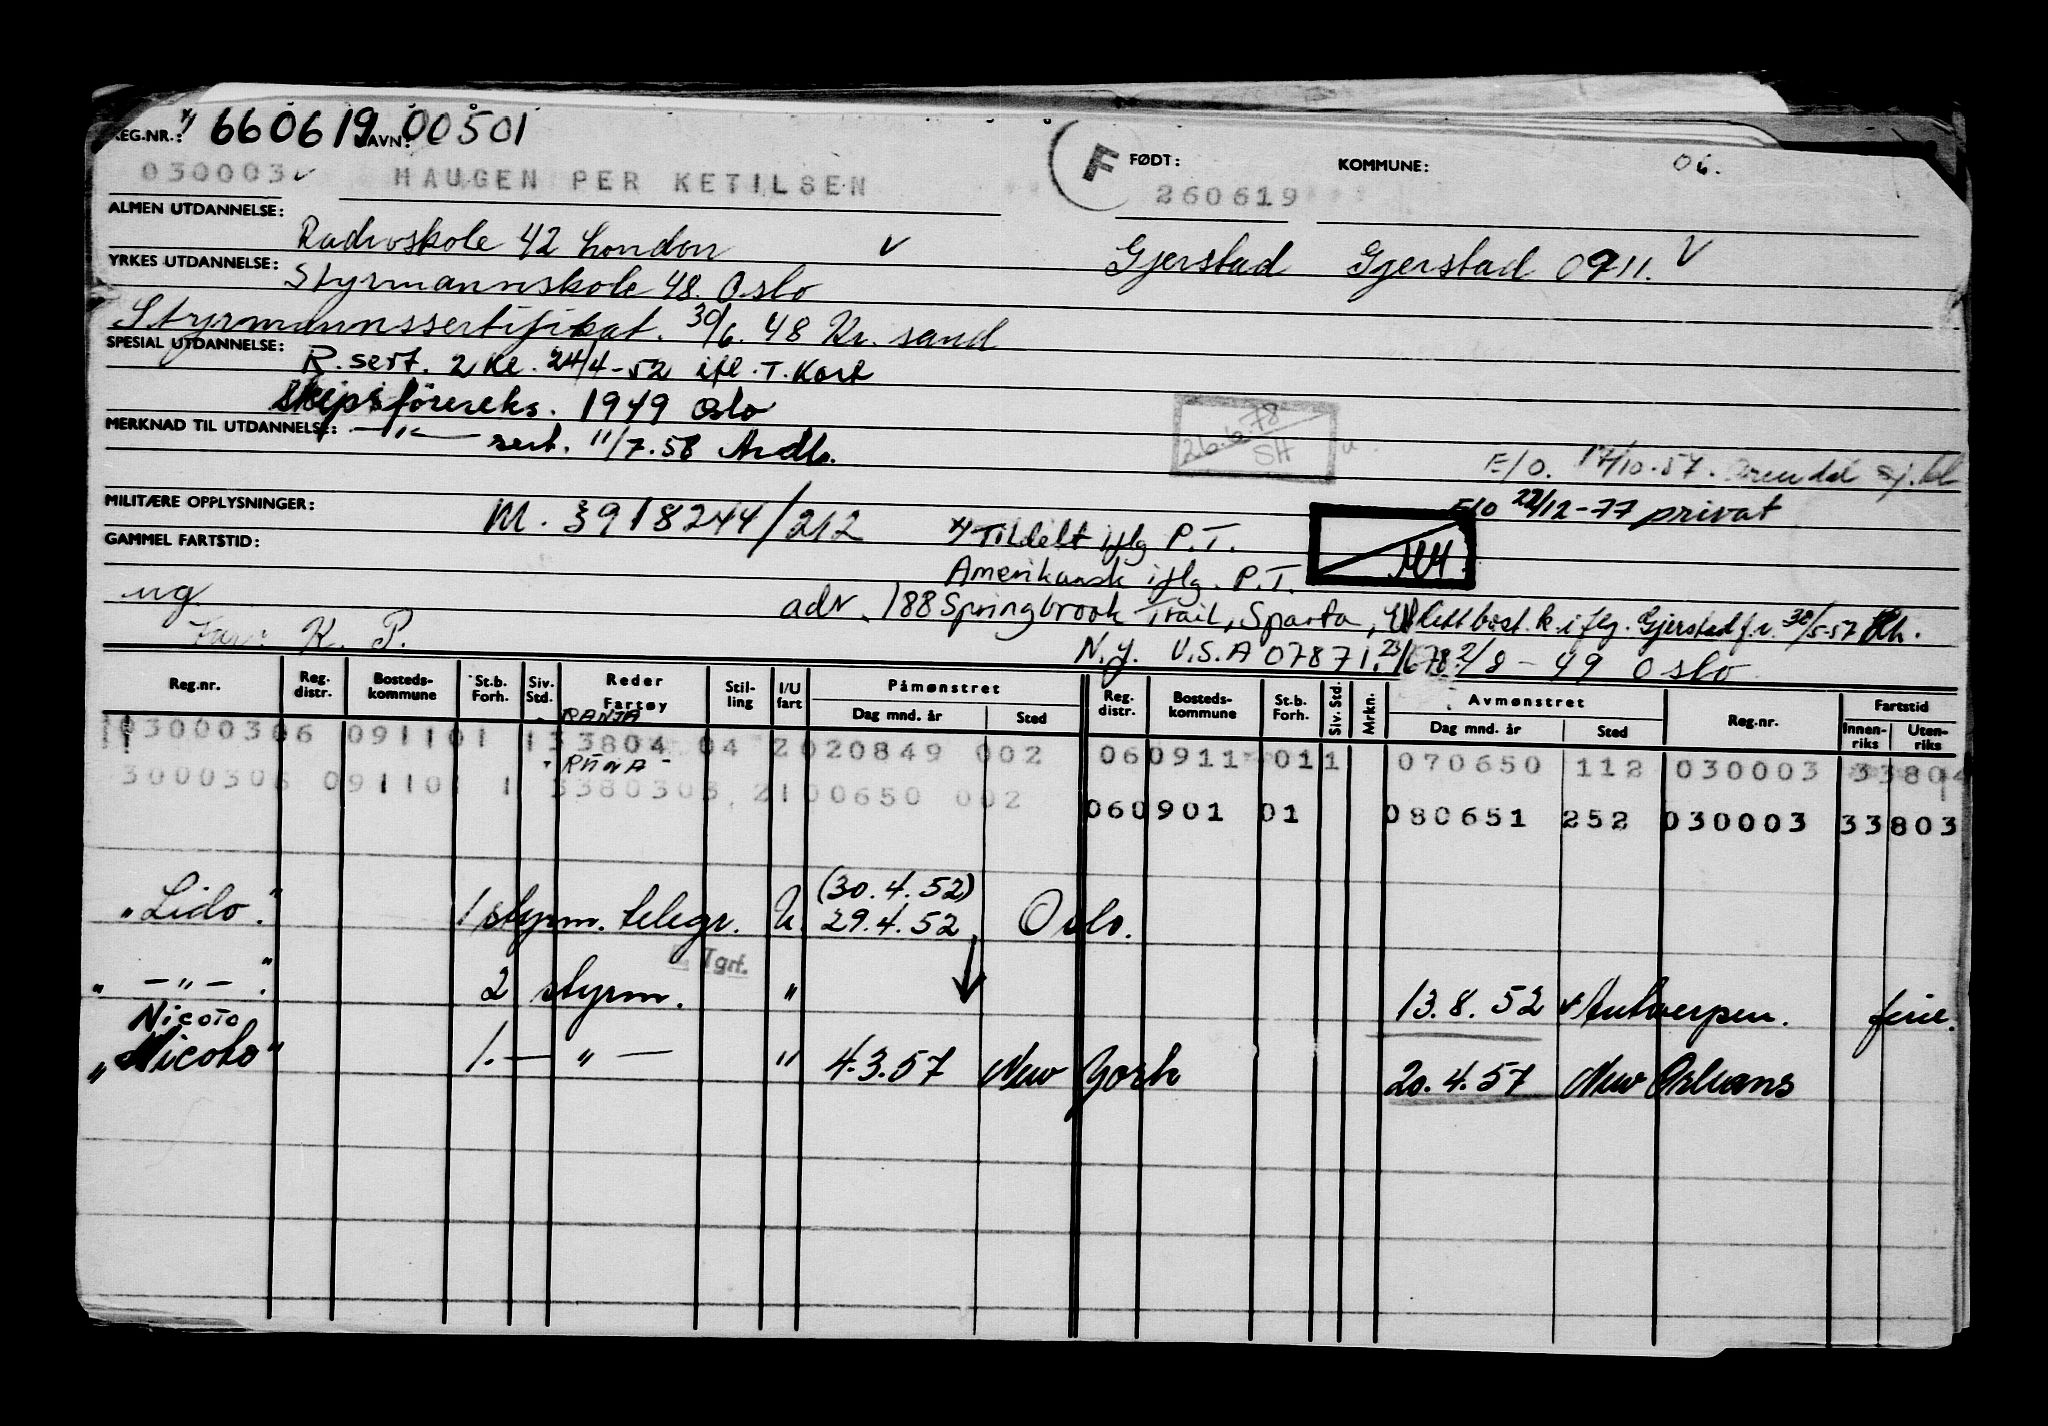 REG.NR.: x) 660619 NAVN: 00501
FØDT: KOMMUNE: 06.
030003 HAUGEN PER KETILSEN F 260619
ALMEN UTDANNELSE: Radioskole 42 London v Gjerstad Gjerstad 0911. V
YRKES UTDANNELSE: Styrmannskole 48. Oslo
Styrmannssertifikat. 30/6. 48 Kr. sand
SPESIAL UTDANNELSE: R. sert. 2 Kl. 24/4-52 ifl. T. Kort
Skipsførereks. 1949 Oslo
MERKNAD TIL UTDANNELSE: —"— sert. 11/7.58 Ardl.
26.6.78 SH
E/O. 17/10-57. Arendal sj.
E/O 22/12-77 privat
MILITÆRE OPPLYSNINGER: M. 3918244/212
x) Tildelt iflg P.T.
GAMMEL FARTSTID: Amerikansk iflg. P.T.
ug adr. 188 Springbrook Trail, Sparta, k. iflg. Gjerstad f.r. 30/5-57
Far: K. P. N.y. U.S.A 07871. 23/6 78. 2/8-49 Oslo
Reg.nr. Reg. distr. Bosteds-kommune St.b. Forh. Siv. Std. Reder Fartøy Stil-ling I/U fart Påmønstret Dag mnd. år Sted Reg. distr. Bosteds-kommune St.b. Forh. Siv. Std. Mrkn. Avmønstret Dag mnd. år Sted Reg.nr. Fartstid Innen-riks Uten-riks
RANJA
03000306 091101 1 133804 04 2020849 002 060911 011 070650 112 030003 33804
RUNA
3000306 091101 1 3380303 2100650 002
060901 01 080651 252 030003 33803
"Lido" 1 styrm. telegr. U. (30.4.52) 29.4.52 Oslo.
Tgrf.
" —"— " 2 styrm. " 13.8.52 Antwerpen. ferie.
Nicoto
"Nicoto" 1. — " — " 4.3.57 New York 20.4.57 New Orleans